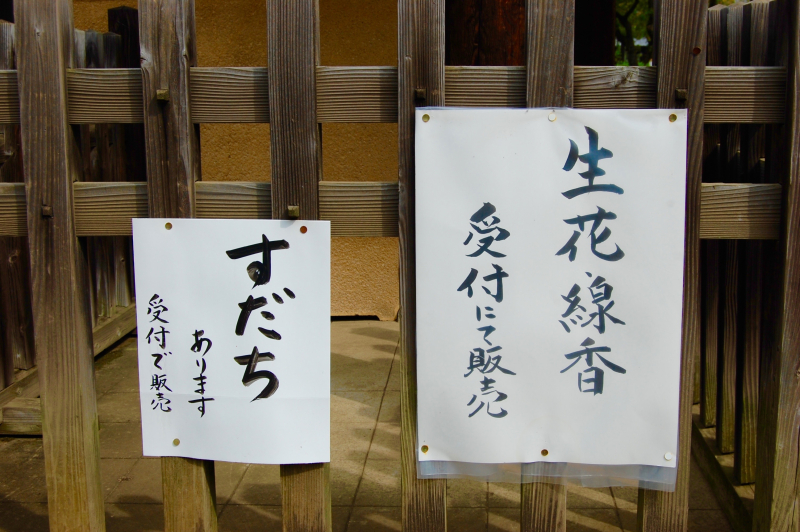 生花、線香
受付にて販売
すだち
あります
受付で販売